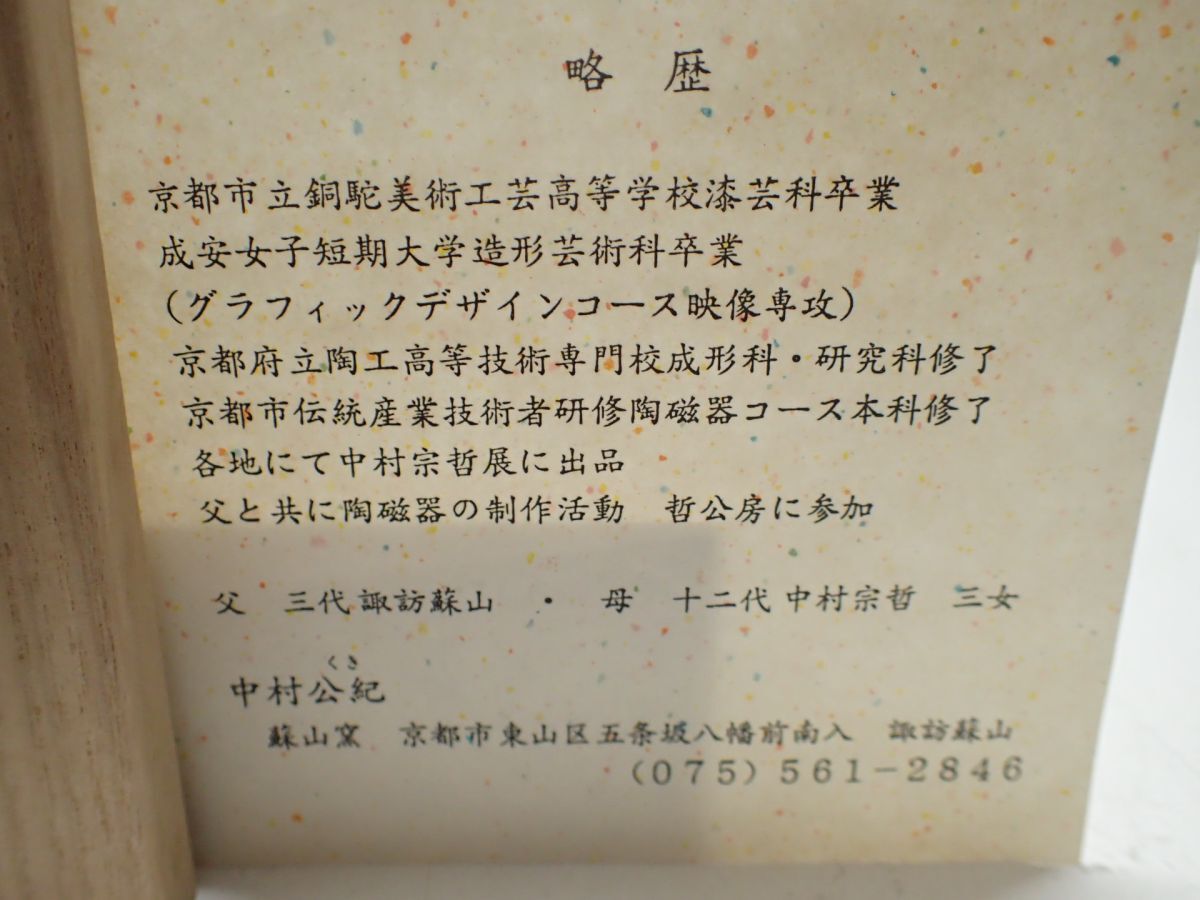 略　歴
京都市立銅駝美術工芸高等学校漆芸科卒業
成安女子短期大学造形芸術科卒業
（グラフィックデザインコース映像専攻）
京都府立陶工高等技術専門校成形科・研究科修了
京都市伝統産業技術者研修陶磁器コース本科修了
各地にて中村宗哲展に出品
父と共に陶磁器の制作活動　哲公房に参加
父　三代 諏訪蘇山　・　母　十二代 中村宗哲　三女
くき
中村公紀
蘇山窯　京都市東山区五条坂八幡前南入　諏訪蘇山
（075）561−2846